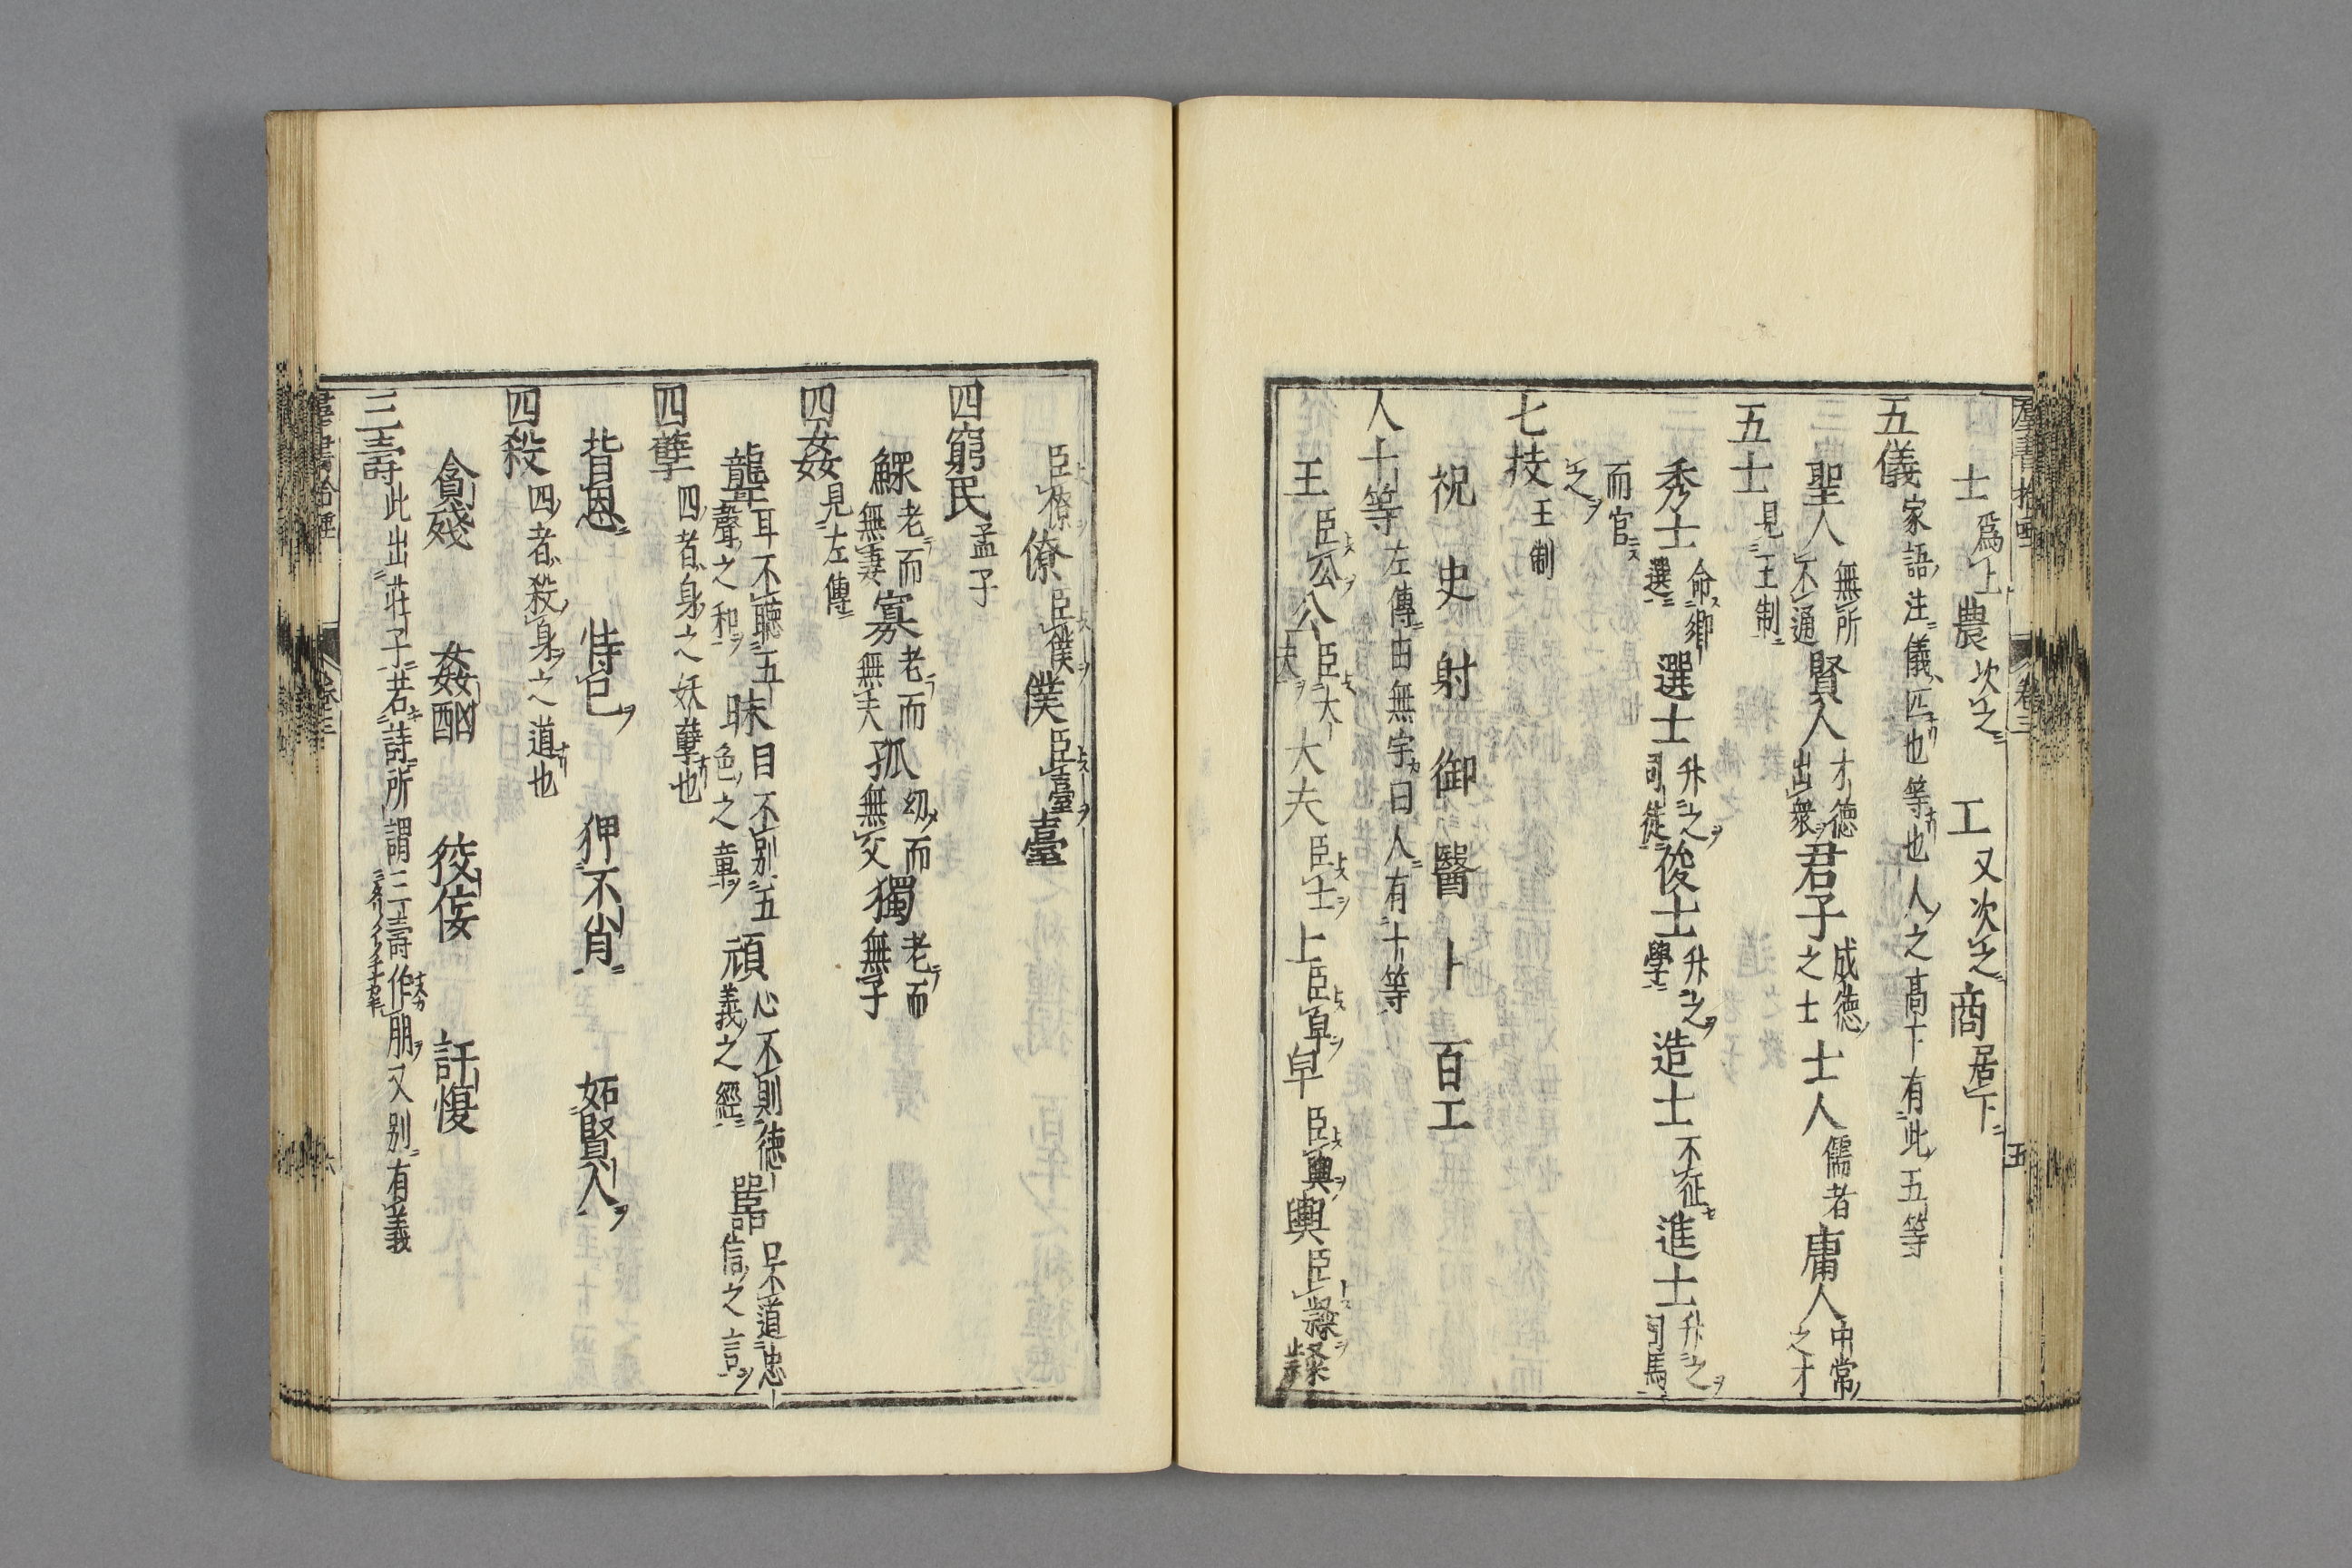 士 爲上 農 次之 工 又次之 商 居下
五儀 家語注儀匹也等也人之高下有此五等
聖人 無所不通 賢人 才德出衆 君子 成德之士 士人 儒者 庸人 中常之才
五士 見王制
秀士 命鄉選 選士 升之司徒 俊士 升之學 造士 不征 進士 升之司馬
而官之
七技 王制
祝 史 射 御 醫 卜 百工
人十等 左傳由無宇曰人有十等
王 臣公 公 臣大夫 大夫 臣士 士 臣皁 皁 臣輿 輿 臣隸 隸
臣僚 僚 臣僕 僕 臣臺 臺
四窮民 孟子
鰥 老而無妻 寡 老而無夫 孤 幼而無父 獨 老而無子
四姦 見左傳
聾 耳不聽五聲之和 昧 目不別五色之章 頑 心不則德義之經 嚚 口不道忠信之言
四孽 四者身之妖孽也
背恩 恃色 狎不肖 妬賢人
四殺 四者殺身之道也
貪殘 姦酗 佞 訐愎
三壽 此出莊子若詩所謂三壽作朋又別有義